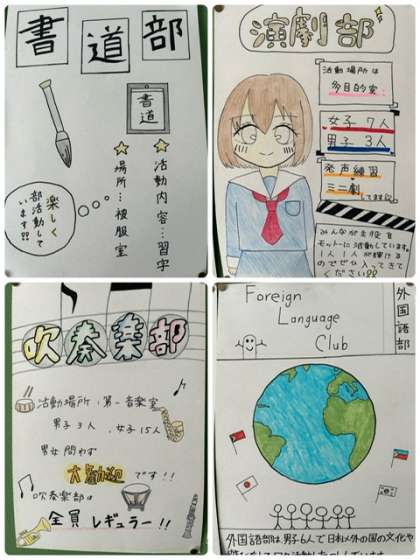 書道部
書道
☆活動内容…習字
☆場所…被服室
楽しく
部活動して
います!!
演劇部
活動場所は
多目的室!
女子 7人
男子 3人
発声練習
ミニ劇
してます
みんなが主役を
モットーに活動しています。
1人1人が輝ける
のでぜひ入ってきて
ください!!
吹奏楽部
活動場所:第一音楽室
男子3人、女子15人
男女問わず
大歓迎です!!
吹奏楽部は
全員レギュラー!!
Foreign
Language
Club
外国語部
外国語部は、男子6人で日本以外の国の文化や